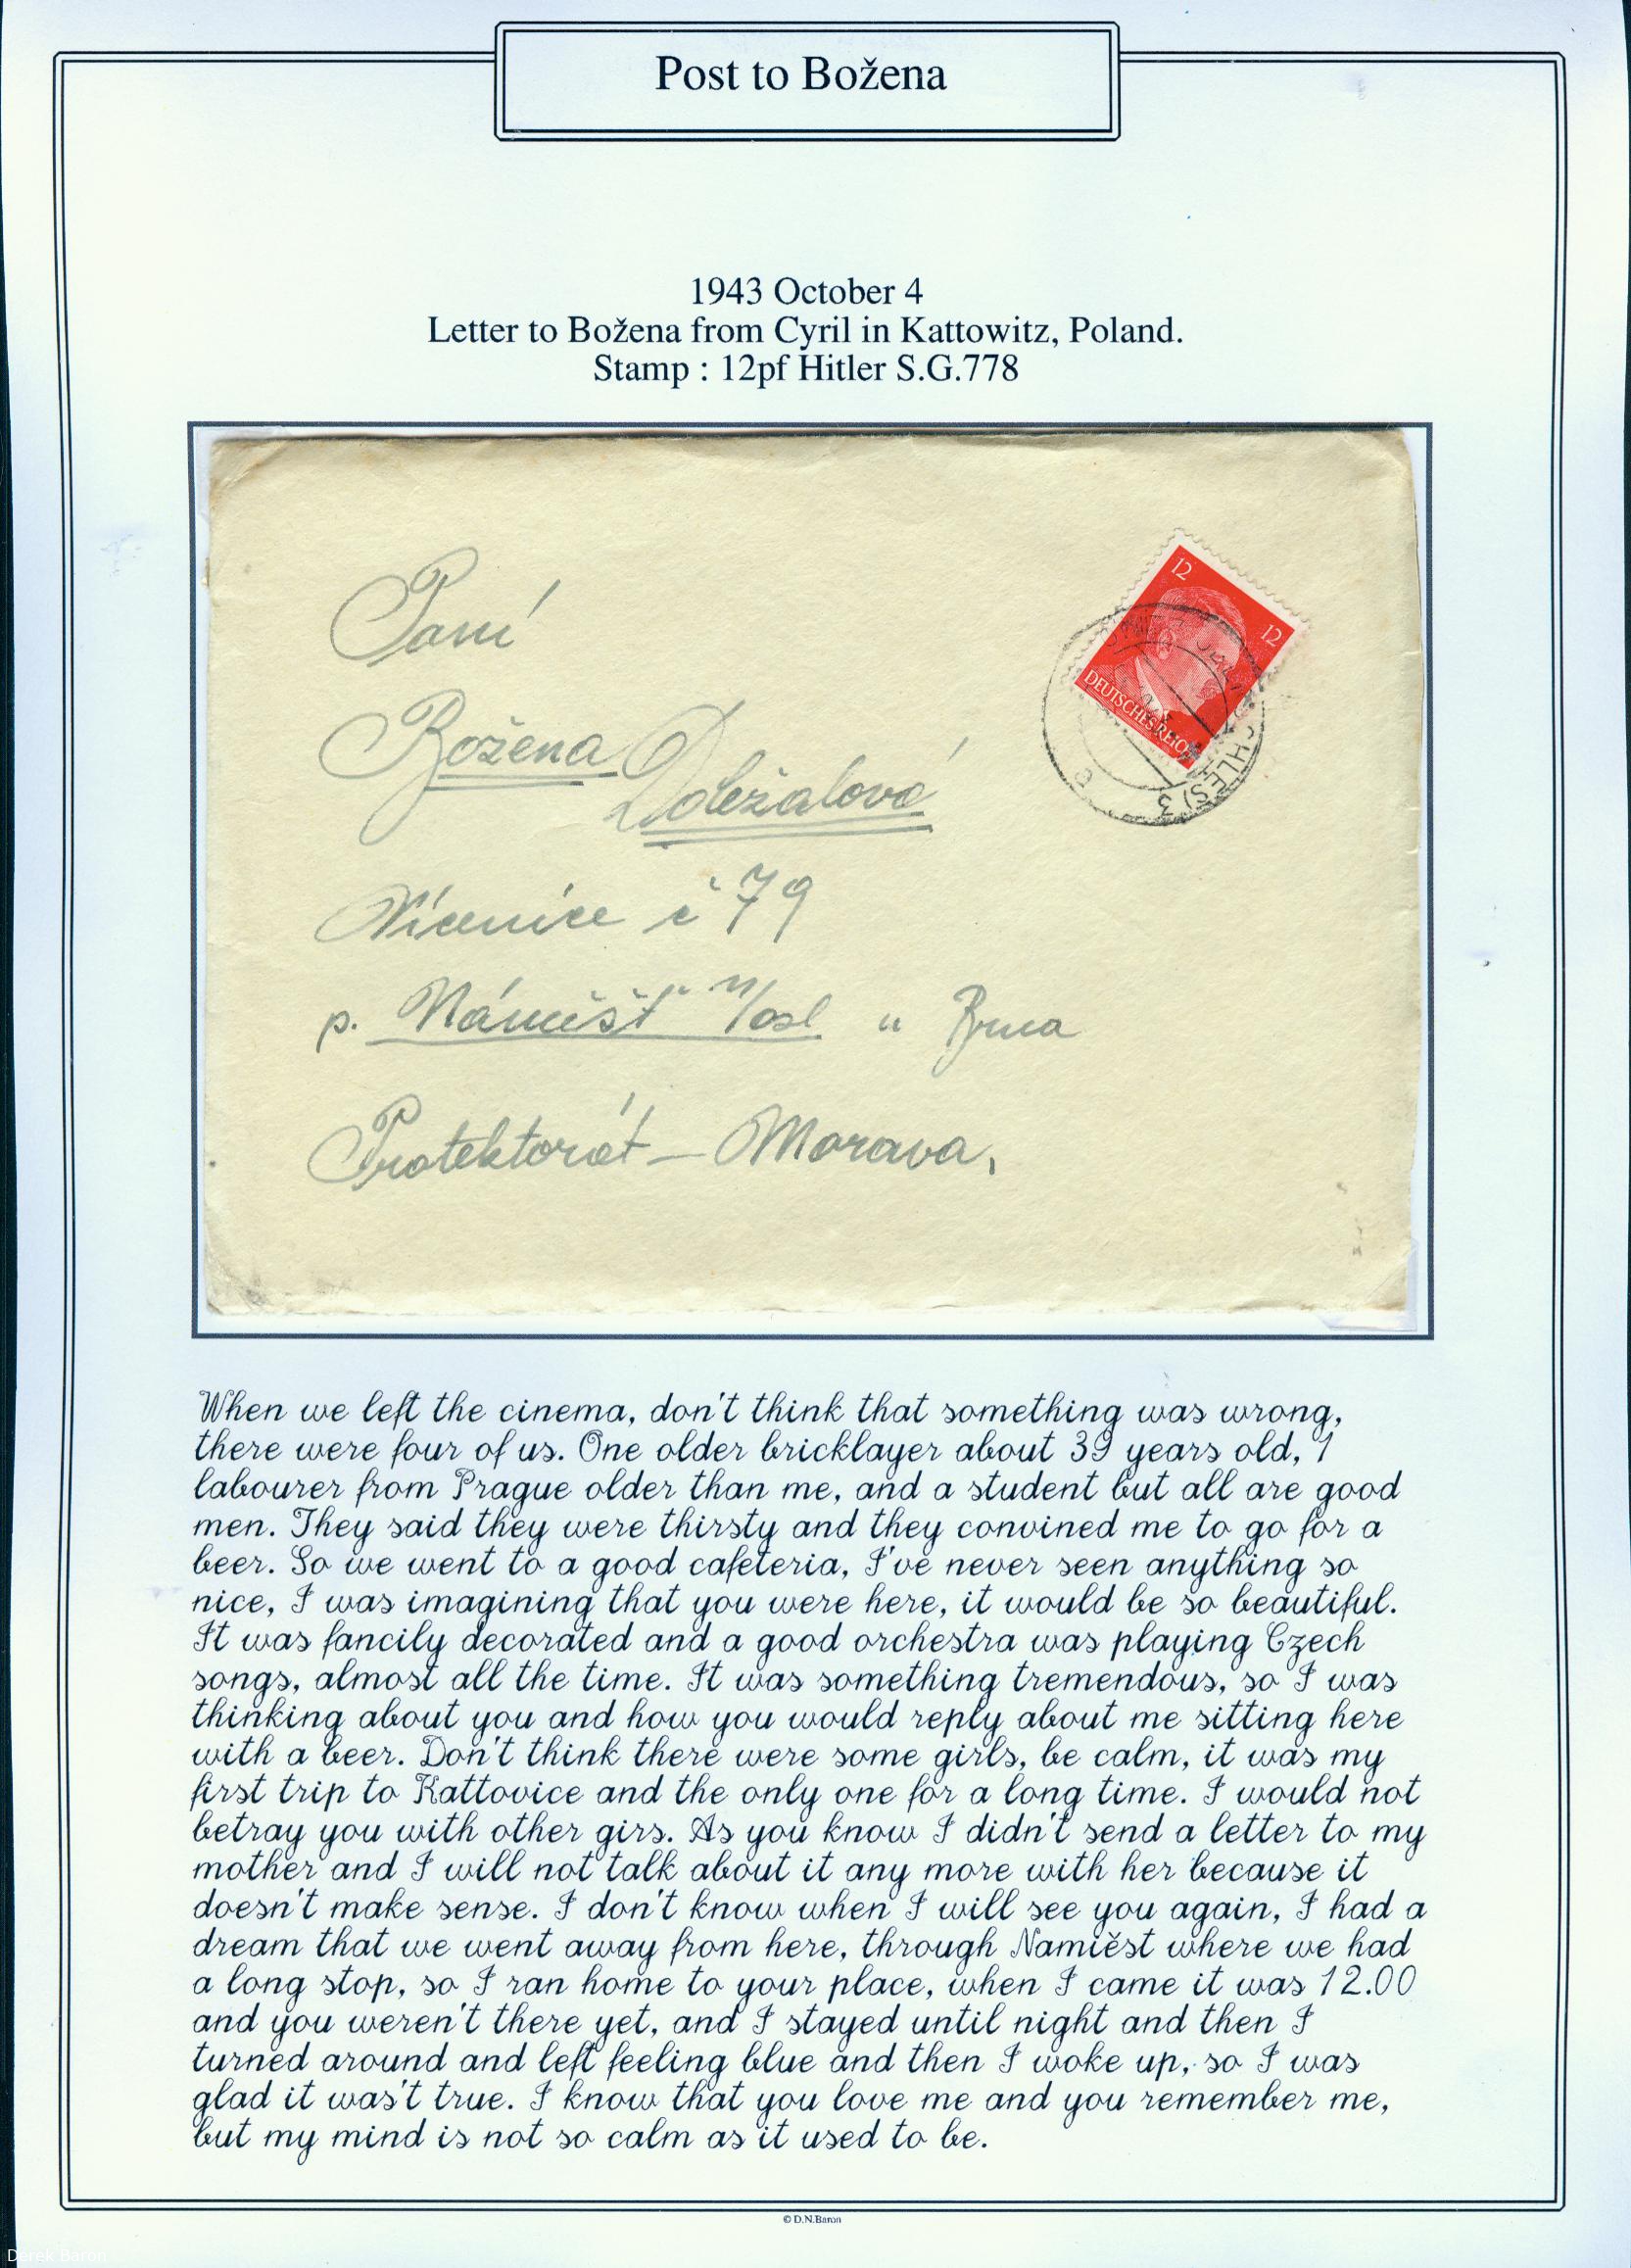 Post to Božena
1943 October 4
Letter to Božena from Cyril in Kattowitz, Poland.
Stamp : 12pf Hitler S.G.778
12
12
DEUTSCHES REICH
CHLES) 3
Paní
Božena
Doležalová
Vícenice č 79
p. Náměšť n/osl u Brna
Protektorát - Morava,
When we left the cinema, don't think that something was wrong,
there were four of us. One older bricklayer about 39 years old, 1
labourer from Prague older than me, and a student but all are good
men. They said they were thirsty and they convined me to go for a
beer. So we went to a good cafeteria, I've never seen anything so
nice, I was imagining that you were here, it would be so beautiful.
It was fancily decorated and a good orchestra was playing Czech
songs, almost all the time. It was something tremendous, so I was
thinking about you and how you would reply about me sitting here
with a beer. Don't think there were some girls, be calm, it was my
first trip to Kattovice and the only one for a long time. I would not
betray you with other girs. As you know I didn't send a letter to my
mother and I will not talk about it any more with her because it
doesn't make sense. I don't know when I will see you again, I had a
dream that we went away from here, through Namiěst where we had
a long stop, so I ran home to your place, when I came it was 12.00
and you weren't there yet, and I stayed until night and then I
turned around and left feeling blue and then I woke up, so I was
glad it was't true. I know that you love me and you remember me,
but my mind is not so calm as it used to be.
© D.N.Baron
Derek Baron